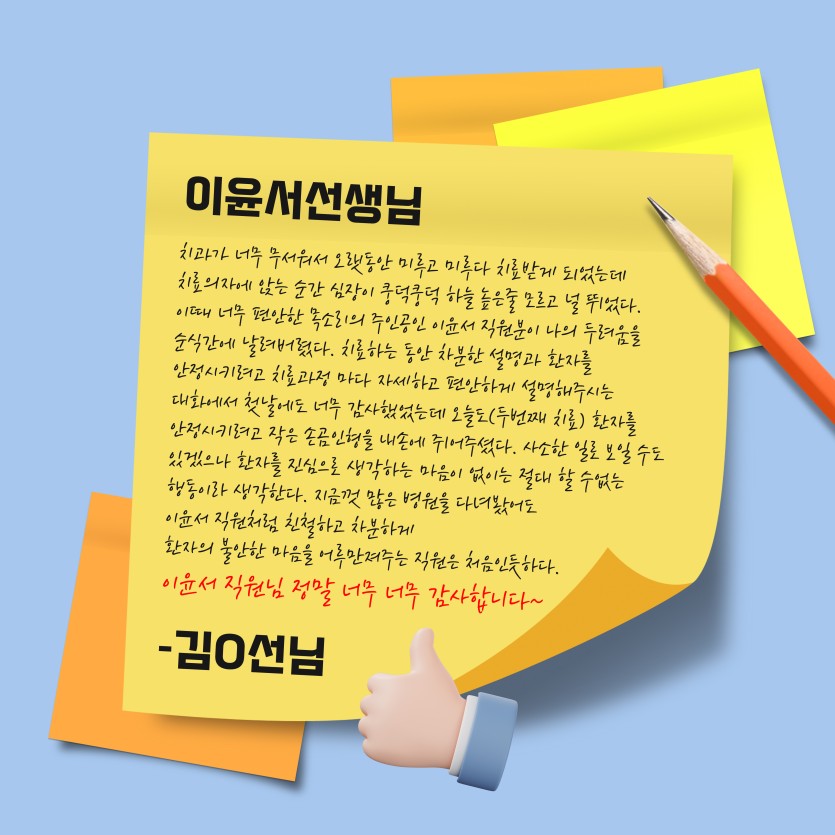 이윤서선생님
치과가 너무 무서워서 오랫동안 미루고 미루다 치료받게 되었는데
치료의자에 앉는 순간 심장이 쿵덕쿵덕 하늘 높은줄 모르고 널 뛰었다.
이때 너무 편안한 목소리의 주인공인 이윤서 직원분이 나의 두려움을
순식간에 날려버렸다. 치료하는 동안 차분한 설명과 환자를
안정시키려고 치료과정 마다 자세하고 편안하게 설명해주시는
대화에서 첫날에도 너무 감사했었는데 오늘도(두번째 치료) 환자를
안정시키려고 작은 손곰인형을 내손에 쥐어주셨다. 사소한 일로 보일 수도
있겠으나 환자를 진심으로 생각하는 마음이 없이는 절대 할 수없는
행동이라 생각한다. 지금껏 많은 병원을 다녀봤어도
이윤서 직원처럼 친철하고 차분하게
환자의 불안한 마음을 어루만져주는 직원은 처음인듯하다.
이윤서 직원님 정말 너무 너무 감사합니다~
-김O선님